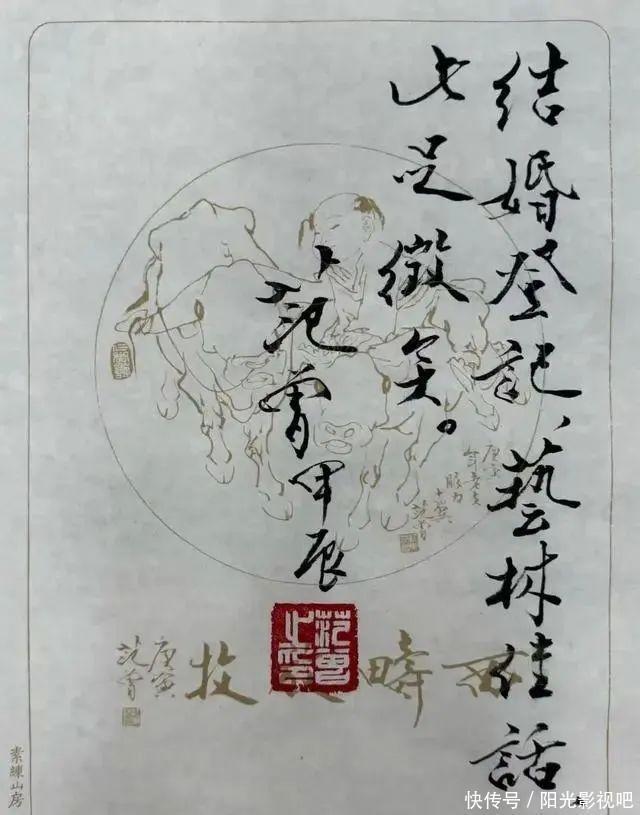 结婚登记、藝林佳話
此足徵矣。
范曾甲辰
范曾之印
庚寅
范曾
西疇 牧
庚寅
范曾
素練山房
快传号 / 阳光影视吧